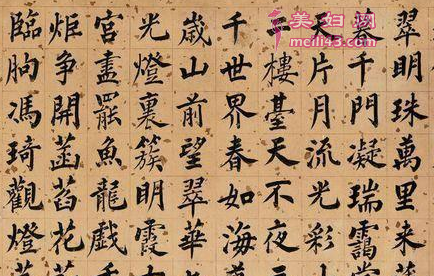 翠明珠萬里来
千門凝瑞靄
天片月流光彩
二樓臺天不夜
千世界春如海
歲山前望翠華
光燈裏簇明霞
宮盡罷魚龍戲
炬争開菡萏花
臨朐馮琦觀燈
美妇网
meili43.com